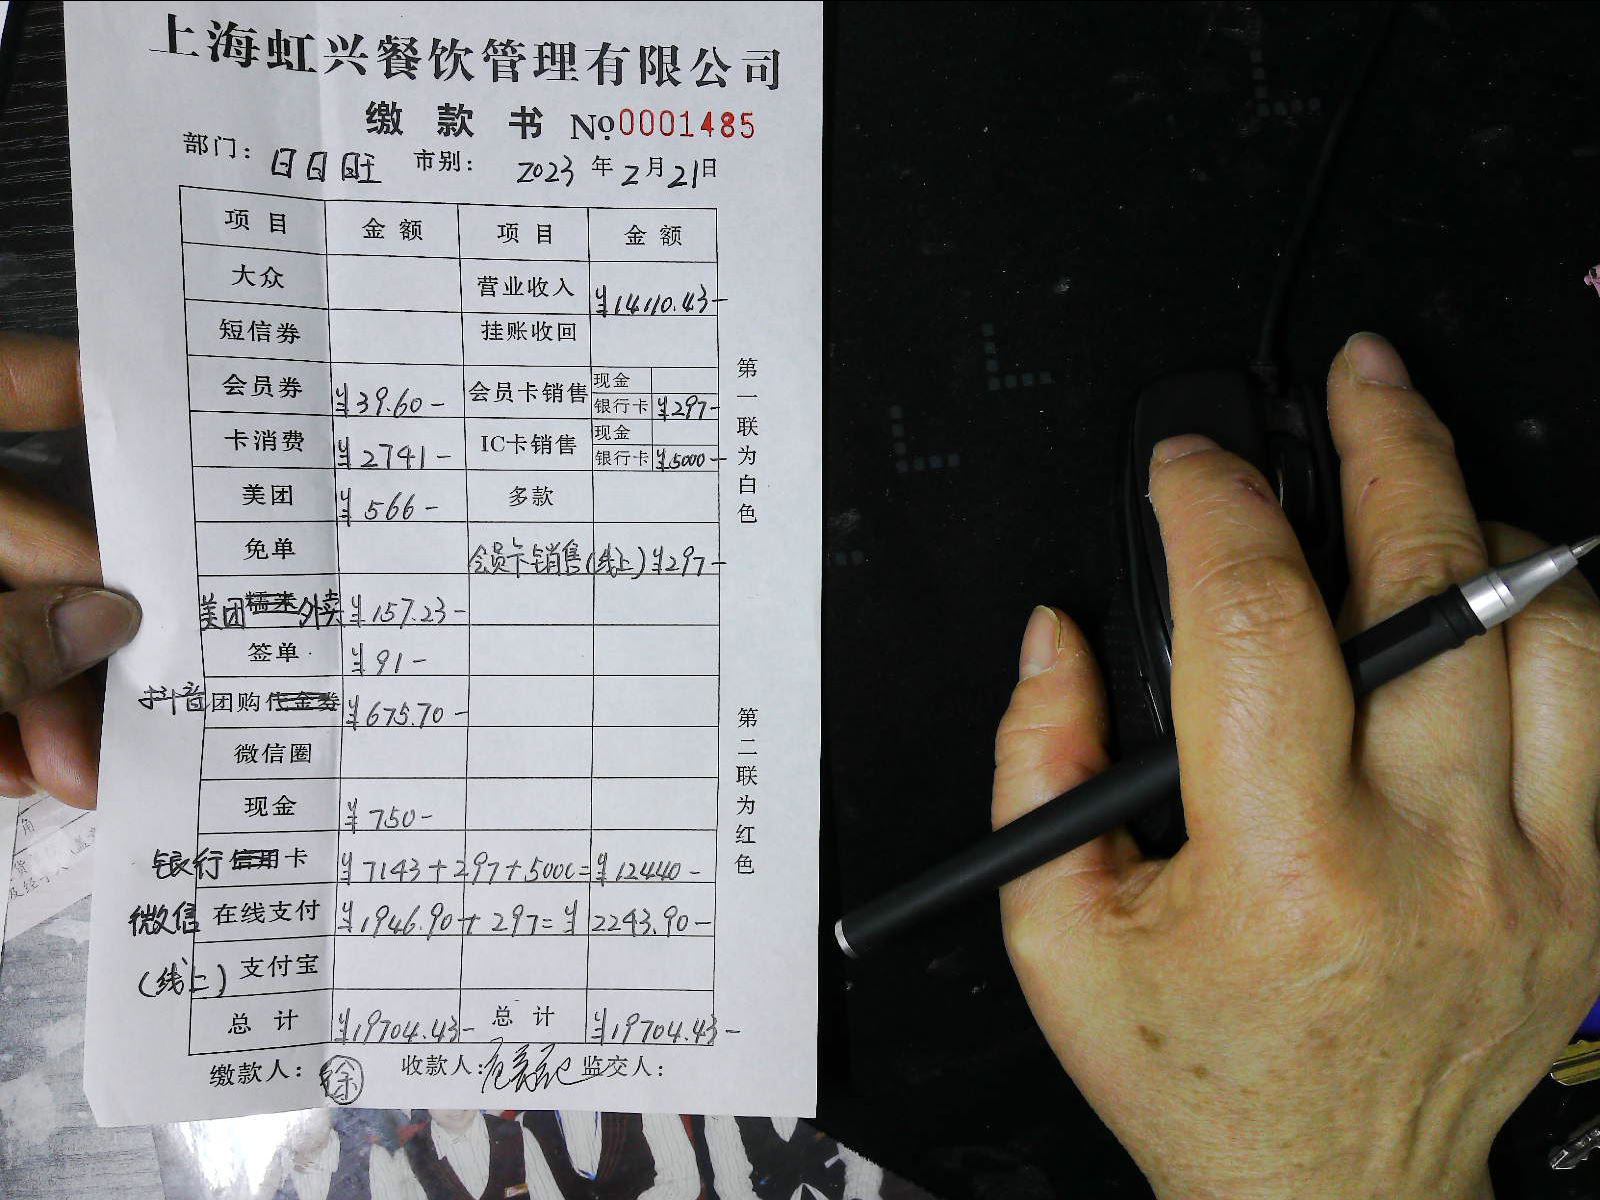 上海虹兴餐饮管理有限公司
缴款书 No.0001485
部门：日日旺 市别： 2023年2月21日
项目 金额 项目 金额
大众 营业收入 ¥14110.43-
短信券 挂账收回
会员券 ¥39.60- 会员卡销售 现金
银行卡 ¥297-
卡消费 ¥2741- IC卡销售 现金
银行卡 ¥5000-
美团 ¥566- 多款
免单 会员卡销售(线上) ¥297-
美团外卖 ¥157.23-
签单 ¥91-
抖音团购 ¥675.70-
微信圈
现金 ¥750-
银行卡 ¥7143+297+5000=¥12440-
微信 在线支付 ¥1946.90+297=¥2243.90-
(线上) 支付宝
总计 ¥19704.43- 总计 ¥19704.43-
缴款人：徐 收款人： 监交人：
第一联为白色
第二联为红色